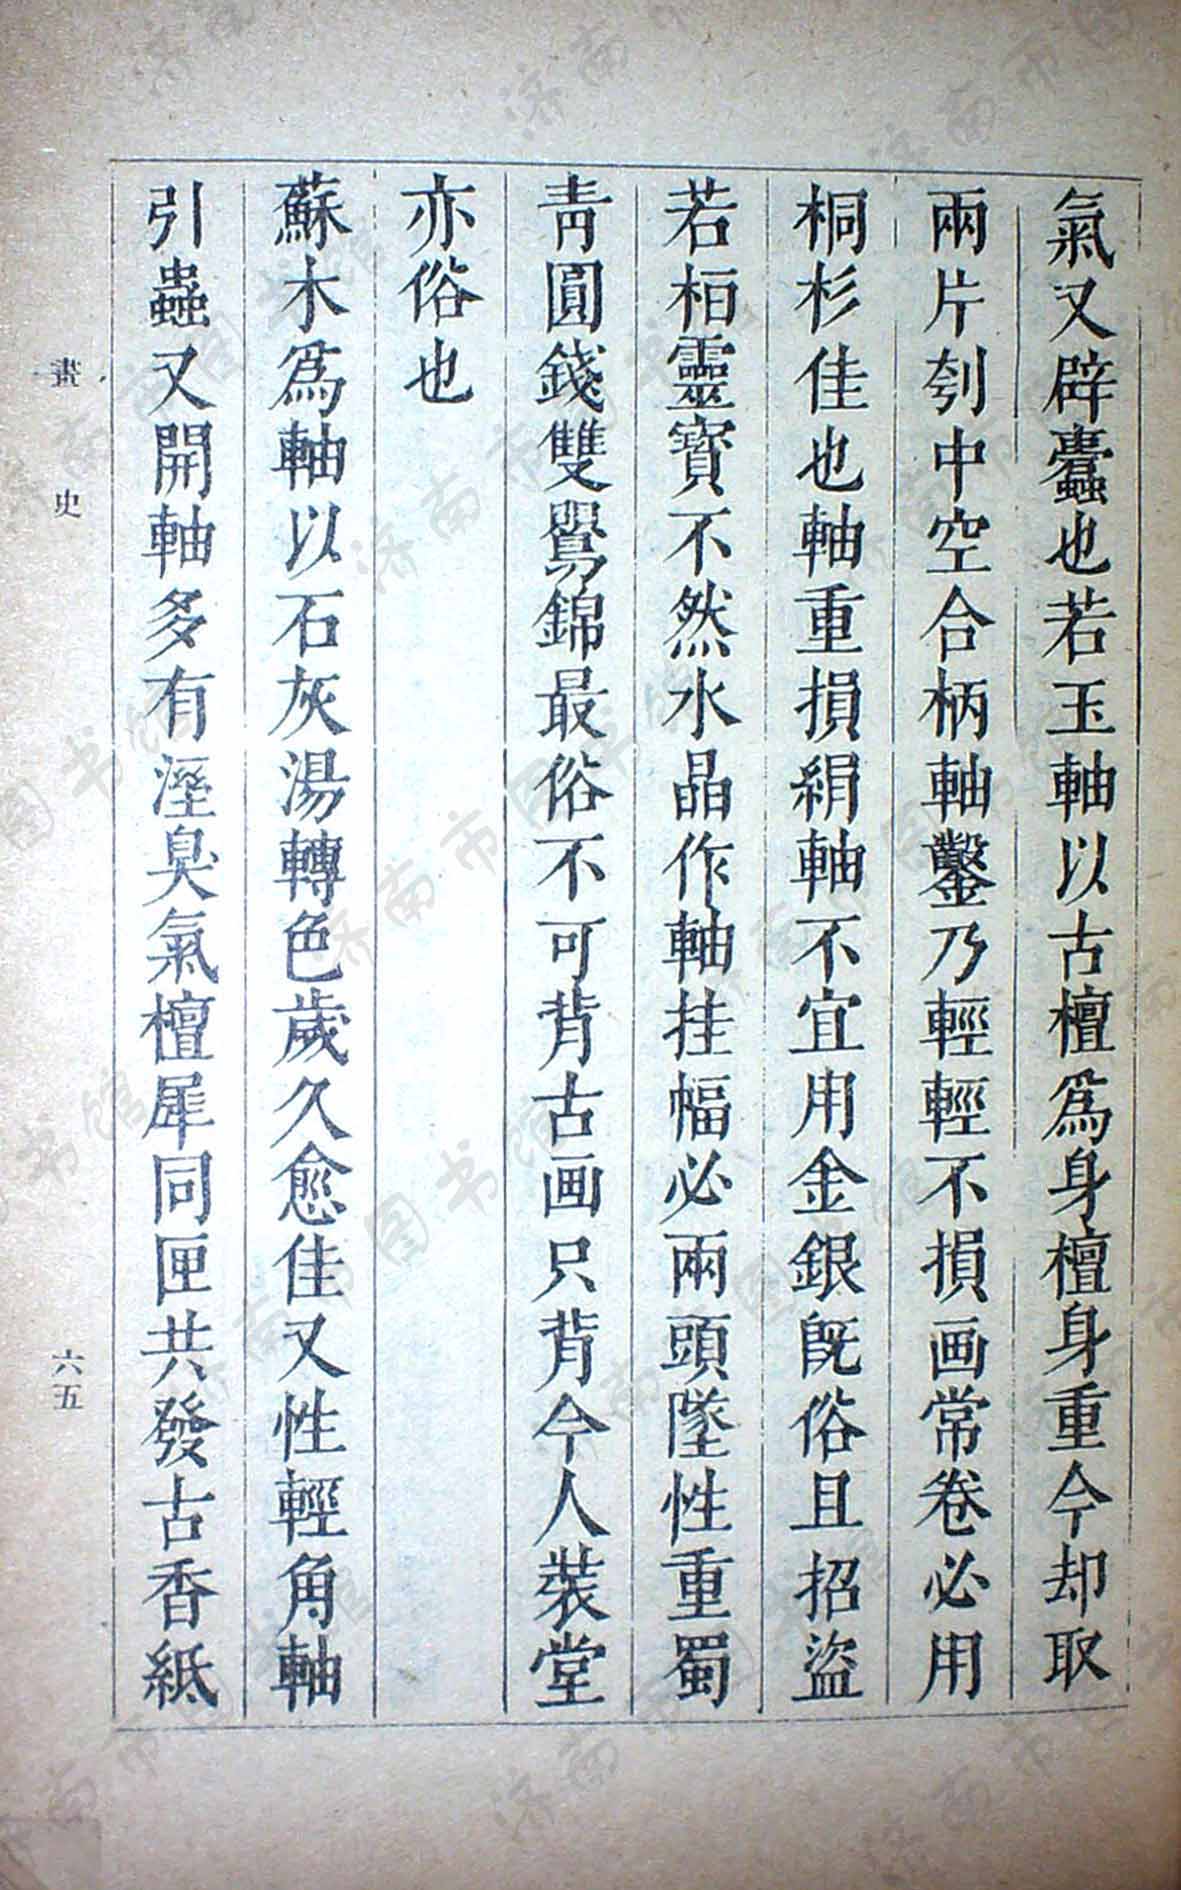 氣又辟蠹也若玉軸以古檀爲身檀身重今却取
兩片刳中空合柄軸鑿乃輕輕不損画常卷必用
桐杉佳也軸重損絹軸不宜用金銀旣俗且招盜
若桓靈寶不然水晶作軸挂幅必兩頭墜性重蜀
青圓錢雙鸂錦最俗不可背古画只背今人裝堂
亦俗也
蘇木爲軸以石灰湯轉色歲久愈佳又性輕角軸
引蟲又開軸多有溼臭氣檀犀同匣共發古香紙
畫史
六五
济南市图书馆